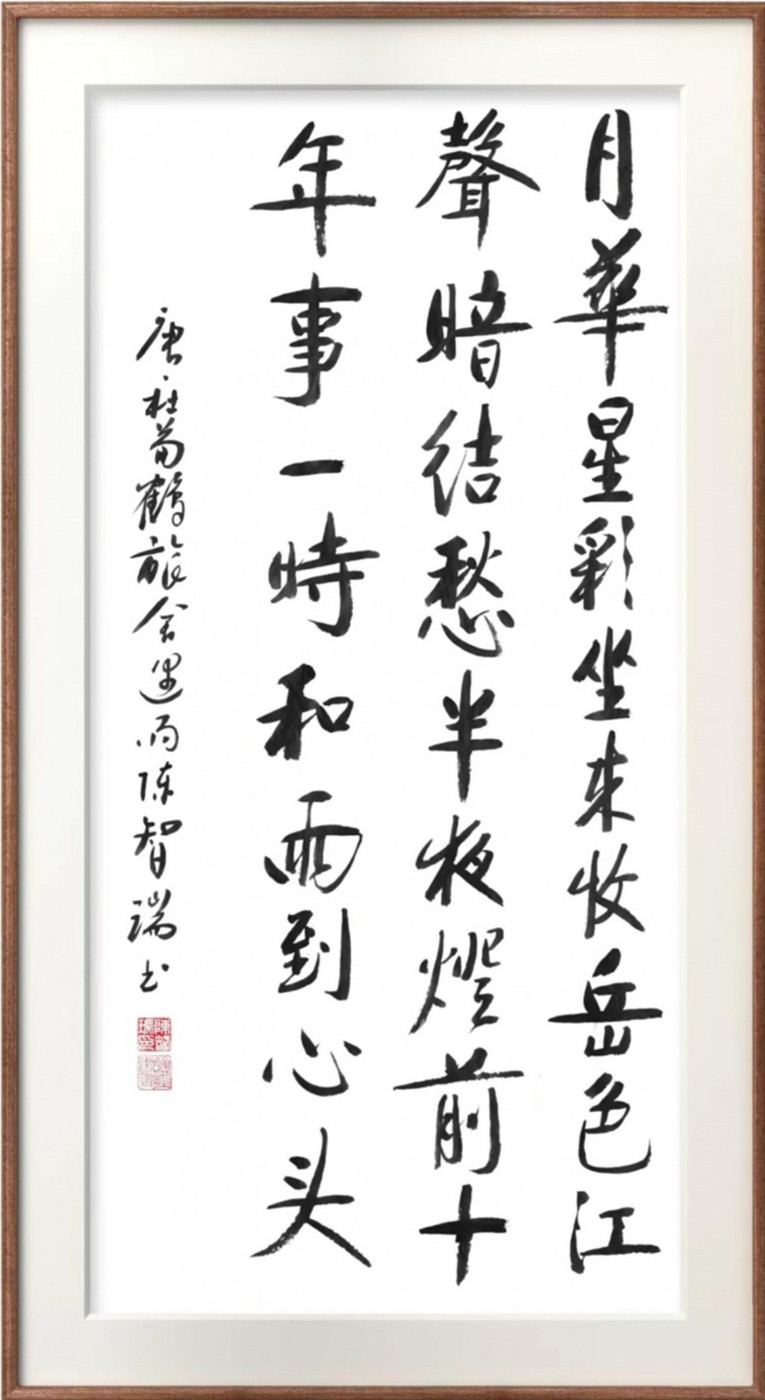 月華星彩坐来收岳色江
聲暗結愁半夜燈前十
年事一時和雨到心头
唐杜荀鶴旅舍遇雨陈智瑞书
陳智瑞印